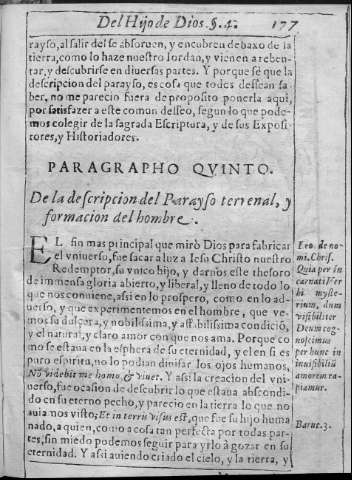 Del Hijo de Dios. §. 4. 177
rayso, al salir del se absoruen, y encubreu debaxo de la
tierra, como lo haze nuestro Iordan, y vienen a reben-
tar, y descubrirse en diuersas partes. Y porque sé que la
descripcion del parayso, es cosa que todos dessean sa-
ber, no me parecio fuera de proposito ponerla aqui,
por satisfazer a este comun desseo, segun lo que pode-
mos colegir de la sagrada Escriptura, y de sus Exposi-
tores, y Historiadores.
PARAGRAPHO QVINTO.
De la descripcion del Parayso terrenal, y
formacion del hombre.
EL fin mas principal que mirò Dios para fabricar
el vniuerso, fue sacar a luz a Iesu Christo nuestro
Redemptor, su vnico hijo, y darnos este thesoro
de immensa gloria abierto, y liberal, y lleno de todo lo
que nos conuiene, assi en lo prospero, como en lo ad-
uerso, y que experimentemos en el hombre, que ve-
mos su dulçura, y nobilissima, y affabilissima condició,
y el natural, y claro amor con que nos ama. Porque co
mo se estaua en la esphera de su eternidad, y el en si es
puro espiritu, no lo podian diuisar los ojos humanos,
No videbit me homo & viuet. Y assi la creacion del vni-
uerso, fue ocasion de descubrir lo que estaua abscondi-
do en su eterno pecho, y parecio en la tierra lo que no
auia nos visto; Et in terris visus est, que fue su hijo huma
nado, a quien, como a cosa tan perfecta por todas par-
tes, sin miedo podemos seguir para yrlo à gozar en su
eternidad. Y assi auiendo criado el cielo, y la tierra, y
Ero. de no-
mi. Chris.
Quia per in
carnati Ver
bi myste-
rium, dum
visibiliter
Deum cog-
noscimus
per hunc in
inuisibiliũ
amorem ra-
piamur.
Baruc. 3.